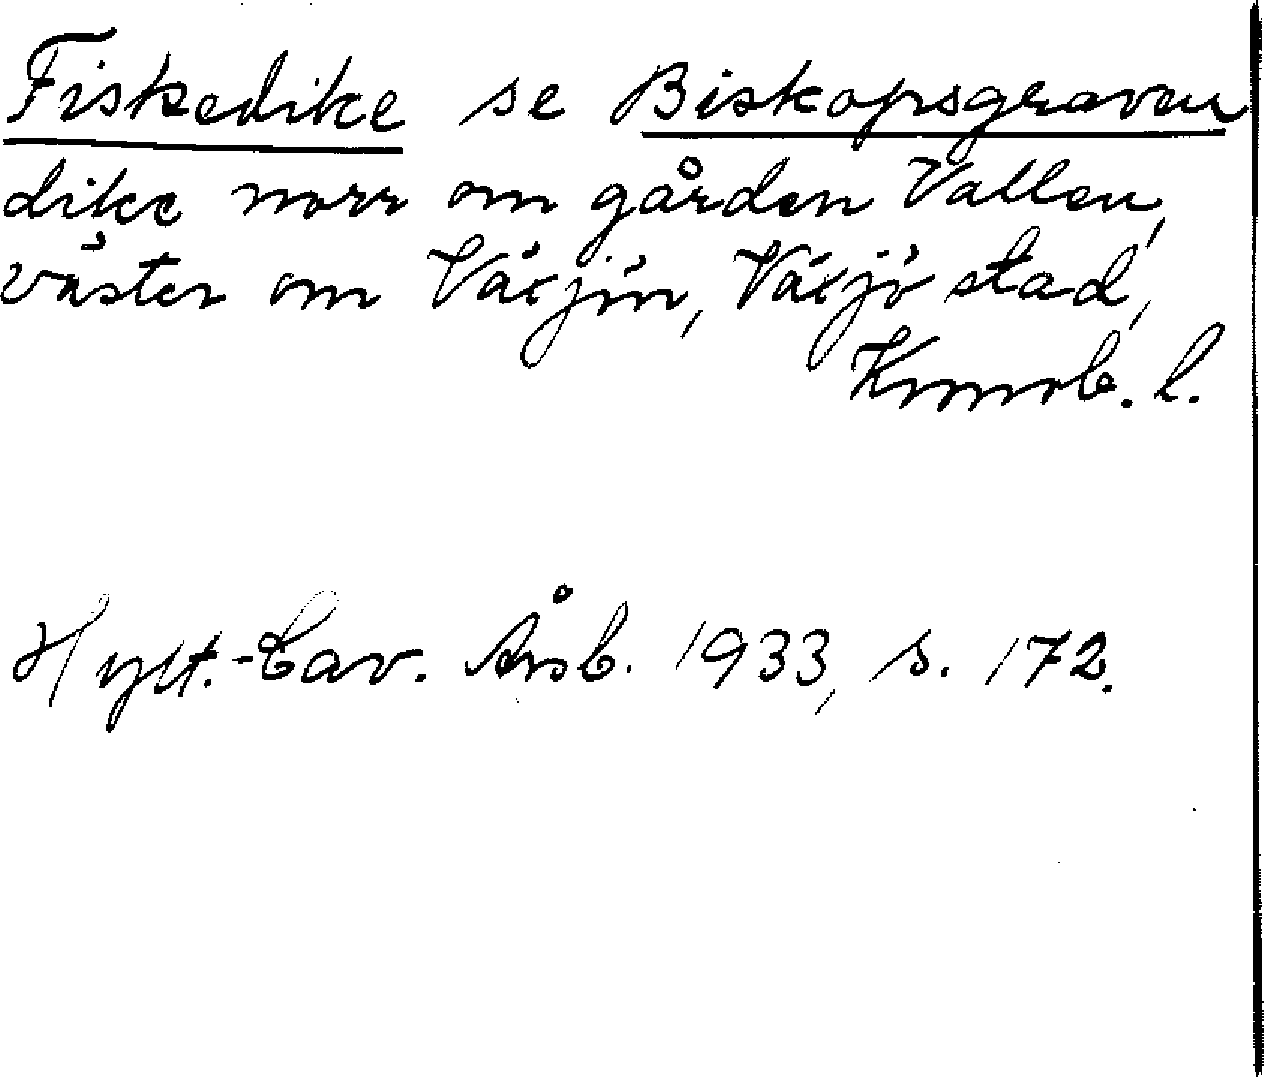 Fiskedike se Biskopsgraven
dike norr om gården Vallen,
väster om Växjön, Växjö stad,
Kronob. l.
Hylt.-Cav. Årsb. 1933, s. 172.